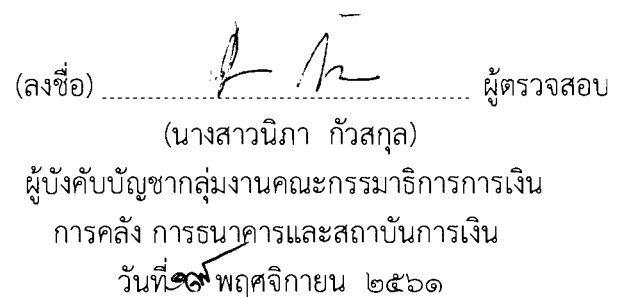 (ลงชื่อ) ........................................ ผู้ตรวจสอบ
(นางสาวนิภา กัวสกุล)
ผู้บังคับบัญชากลุ่มงานคณะกรรมาธิการการเงิน
การคลัง การธนาคารและสถาบันการเงิน
วันที่ พฤศจิกายน ๒๕๖๑